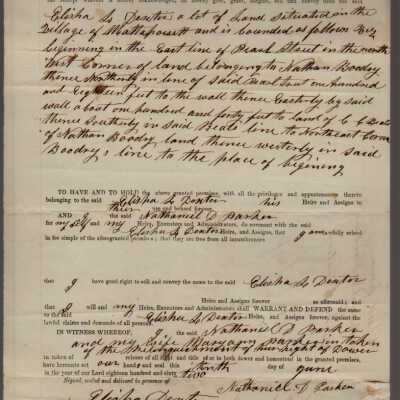 Elisha L Dexter a lot of Land situated in the
Village of Mattapoisett and is bounded as follows Viz
beginning in the East line of Pearl Street in the north
West Corner of land belonging to Nathan Boodry
thence Northerly in line of said Street one hundred
and Eighteen feet to the wall thence Easterly by said
wall about one hundred and forty feet to land of
thence Southerly in said line to Northeast Corner
of Nathan Boodry land thence westerly in said
Boodrys line to the place of begining
TO HAVE AND TO HOLD the above granted premises, with all the privileges and appurtenances thereto
belonging to the said Elisha L Dexter his Heirs and Assigns to
their use and behoof forever.
AND I the said Nathaniel D Parker
for my Self and my Heirs, Executors and Administrators, do covenant with the said
Elisha L Dexter Heirs and Assigns, that I am lawfully seized
in fee simple of the aforegranted premises; that they are free from all incumbrances
that I have good right to sell and convey the same to the said Elisha L Dexter
Heirs and Assigns forever as aforesaid; and
that I will and my Heirs, Executors and Administrators shall WARRANT AND DEFEND the same
to the said Elisha L Dexter Heirs and Assigns forever, against the
lawful claims and demands of all persons.
IN WITNESS WHEREOF, I, the said Nathaniel D Parker
and my Wife Mary ann parker in token
of the Relinquishment of her right of Dower
in token of release of all right and title of or in both dower and homestead in the granted premises,
have hereunto set our hand and seal this tenth day of June
in the year of our Lord eighteen hundred and sixty two
Signed, sealed and delivered in presence of
Nathaniel D Parker
Elisha Dexter